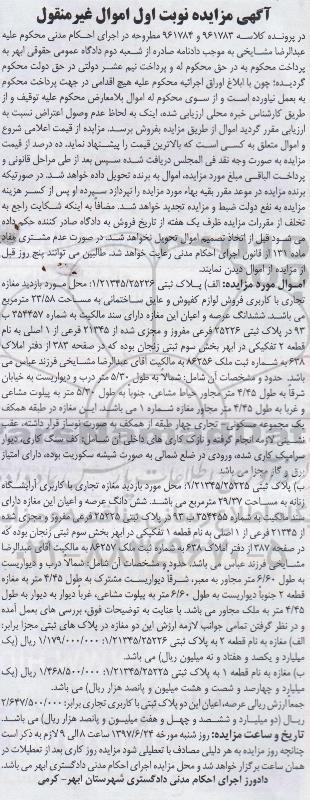 آگهی مزایده نوبت اول اموال غیرمنقول
در پرونده کلاسه ۹۶۱۷۸۳ و ۹۶۱۷۸۴ مطروحه در اجرای احکام مدنی محکوم علیه
عبدالرضا مشایخی به موجب دادنامه صادره از شعبه دوم دادگاه عمومی حقوقی ابهر به
پرداخت محکوم به در حق محکوم له و پرداخت نیم عشر دولتی در حق دولت محکوم
گردیده؛ چون با ابلاغ اوراق اجرائیه محکوم علیه هیچ اقدامی در جهت پرداخت محکوم
به بعمل نیاورده است و از سوی محکوم له اموال بلامعارض محکوم علیه توقیف و از
طریق کارشناس خبره محلی ارزیابی شده، اینک به لحاظ عدم وصول اعتراض نسبت به
ارزیابی مقرر گردید اموال از طریق مزایده بفروش برسد. مزایده از قیمت اعلامی شروع
و اموال متعلق به کسی است که بالاترین قیمت را پیشنهاد نماید. ده درصد از قیمت
مزایده به صورت وجه نقد فی المجلس دریافت شده سپس بعد از طی مراحل قانونی و
پرداخت الباقی مبلغ مورد مزایده، اموال به برنده تحویل داده خواهد شد. در صورتیکه
برنده مزایده در موعد مقرر بقیه بهاء مورد مزایده را نپردازد سپرده او پس از کسر هزینه
مزایده به نفع دولت ضبط و مزایده تجدید خواهد شد. مضافا به اینکه شکایت راجع به
تخلف از مقررات مزایده ظرف یک هفته از تاریخ فروش به دادگاه صادر کننده حکم داده
می شود قبل از اتخاذ تصمیم اموال تحویل نخواهد شد. در صورت عدم مشتری مفاد
ماده ۱۳۱ از قانون اجرای احکام مدنی رعایت خواهد شد. طالبین می توانند پنج روز قبل
از مزایده از اموال دیدن نمایند.
اموال مورد مزایده: الف) پلاک ثبتی ۱/۲۱۳۴۵/۲۵۲۲۶: محل مورد بازدید مغازه
تجاری با کاربری فروش لوازم کفپوش و عایق ساختمانی به مساحت ۲۳/۵۸ مترمربع
می باشد. ششدانگ عرصه و اعیان این مغازه دارای سند مالکیت به شماره ۳۵۴۴۵۷ ب
۹۳ در پلاک ثبتی ۲۵۲۲۶ فرعی مفروز و مجزی شده از ۲۱۳۴۵ فرعی از ۱ اصلی به نام
قطعه ۲ تفکیکی در ابهر بخش سوم ثبتی زنجان بوده که در صفحه ۳۸۳ از دفتر املاک
۶۳۸ به شماره ثبت ملک ۸۶۲۵۶ به مالکیت آقای عبدالرضا مشایخی فرزند عباس می
باشد. حدود و مشخصات آن شامل: شمالا به طول ۵/۳۰ متر درب و دیواریست به خیابان
شرقا به طول ۴/۴۵ متر مجاور حیاط مشاعی، جنوبا به طول ۵/۳۰ متر به پیلوت مشاعی
و غربا به طول ۴/۴۵ متر مجاور مغازه شماره ۱ می باشد. این مغازه در طبقه همکف
یک مجموعه مسکونی- تجاری چهار طبقه از همکف به صورت نوساز قرار داشته، عقب
نشینی لازمه انجام گرفته و نازک کاری های داخلی آن شامل: کف سنگ کاری، دیوار
سرامیک کاری شده، ورودی در ضلع شمالی به صورت شیشه سکوریت بوده، دارای امتیاز
برق و گاز مجزا می باشد
ب) پلاک ثبتی ۱/۲۱۳۴۵/۲۵۲۲۵: محل مورد بازدید مغازه تجاری با کاربری آرایشگاه
زنانه به مساحت ۲۹/۳۷ مترمربع می باشد. شش دانگ عرصه و اعیان این مغازه دارای
سند مالکیت به شماره ۳۵۴۴۵۵ ب ۹۳ در پلاک ثبتی ۲۵۲۲۵ فرعی مفروز و مجزی شده
از ۲۱۳۴۵ فرعی از ۱ اصلی به نام قطعه ۱ تفکیکی در ابهر بخش سوم ثبتی زنجان بوده که
در صفحه ۳۸۷ از دفتر املاک ۶۳۸ به شماره ثبت ملک ۸۶۲۵۷ به مالکیت آقای عبدالرضا
مشایخی فرزند عباس می باشد. حدود و مشخصات آن شامل: شمالا درب و دیواریست
به طول ۶/۶۰ متر مجاور به معبر، شرقا دیواریست مشترک به طول ۴/۴۵ متر به مغازه
قطعه ۲ جنوبا دیواریست به طول ۶/۶۰ متر به پیلوت مشاعی، غربا دیوار به دیوار به طول
۴/۴۵ متر به ملک مجاور می باشد. با عنایت به توضیحات فوق، بررسی های بعمل آمده
و در نظر گرفتن تمامی جوانب لازمه ارزش این دو مغازه در پلاک های ثبتی مجزا برابر:
الف) مغازه به نام قطعه ۲ به پلاک ثبتی ۱/۲۱۳۴۵/۲۵۲۲۶: ۱/۱۷۹/۰۰۰/۰۰۰ ریال (یک
میلیارد و یکصد و هفتاد و نه میلیون ریال) می باشد.
ب) مغازه به نام قطعه ۱ به پلاک ثبتی ۱/۲۱۳۴۵/۲۵۲۲۵: ۱/۴۶۸/۵۰۰/۰۰۰ ریال (یک
میلیارد و چهارصد و شصت و هشت میلیون و پانصد هزار ریال) می باشد.
جمعا ارزش ریالی عرصه، اعیان این دو پلاک ثبتی با کاربری تجاری برابر: ۲/۶۴۷/۵۰۰/۰۰۰
ریال (دو میلیارد و ششصد و چهل و هفت میلیون و پانصد هزار ریال) می باشد.
تاریخ و ساعت مزایده: روز شنبه مورخه ۱۳۹۷/۶/۲۴ ساعت ۸ الی ۹ لازم به ذکر است
چنانچه روز مزایده به هر دلیلی مصادف با تعطیلی شود مزایده روز کاری بعد از تعطیلات در
همان ساعت برگزار خواهد شد و محل مزایده اجرای احکام مدنی دادگستری ابهر می باشد.
دادورز اجرای احکام مدنی دادگستری شهرستان ابهر- کرمی